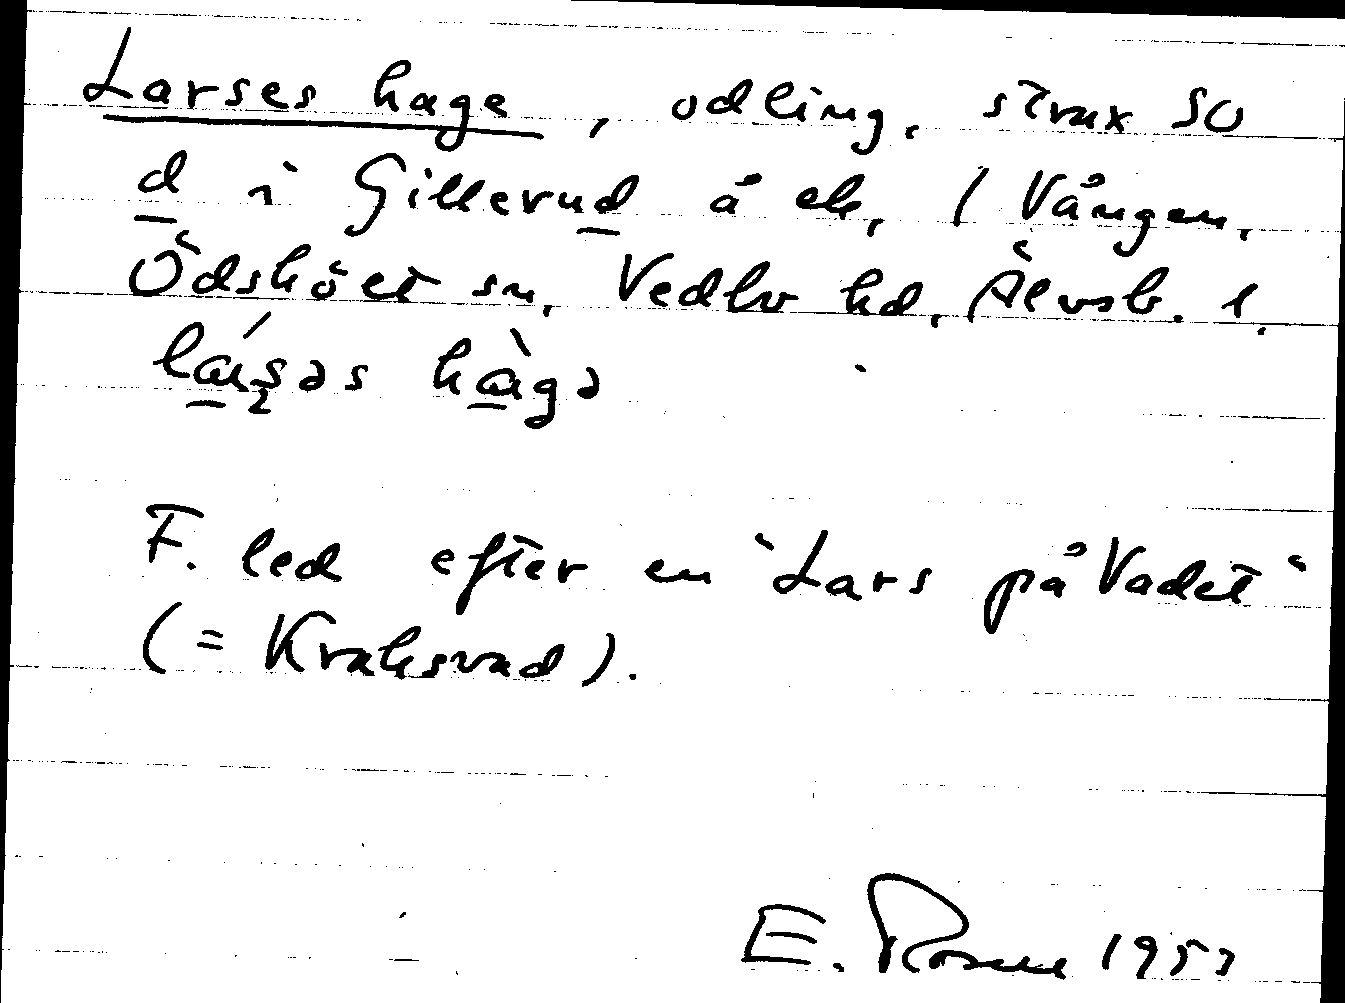 Larses hage, odling, strax SO
d i Gillerud å ek, / Vången,
Ödskölt sn, Vedbo hd, Älvsb. l.
F. led efter en "Lars på Vadet"
(= Kraksvad).
E. Rosell 1953